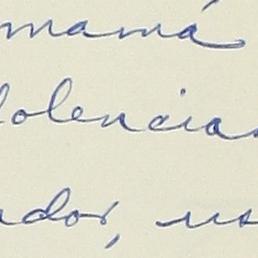 mamá
dolencias
ador, us